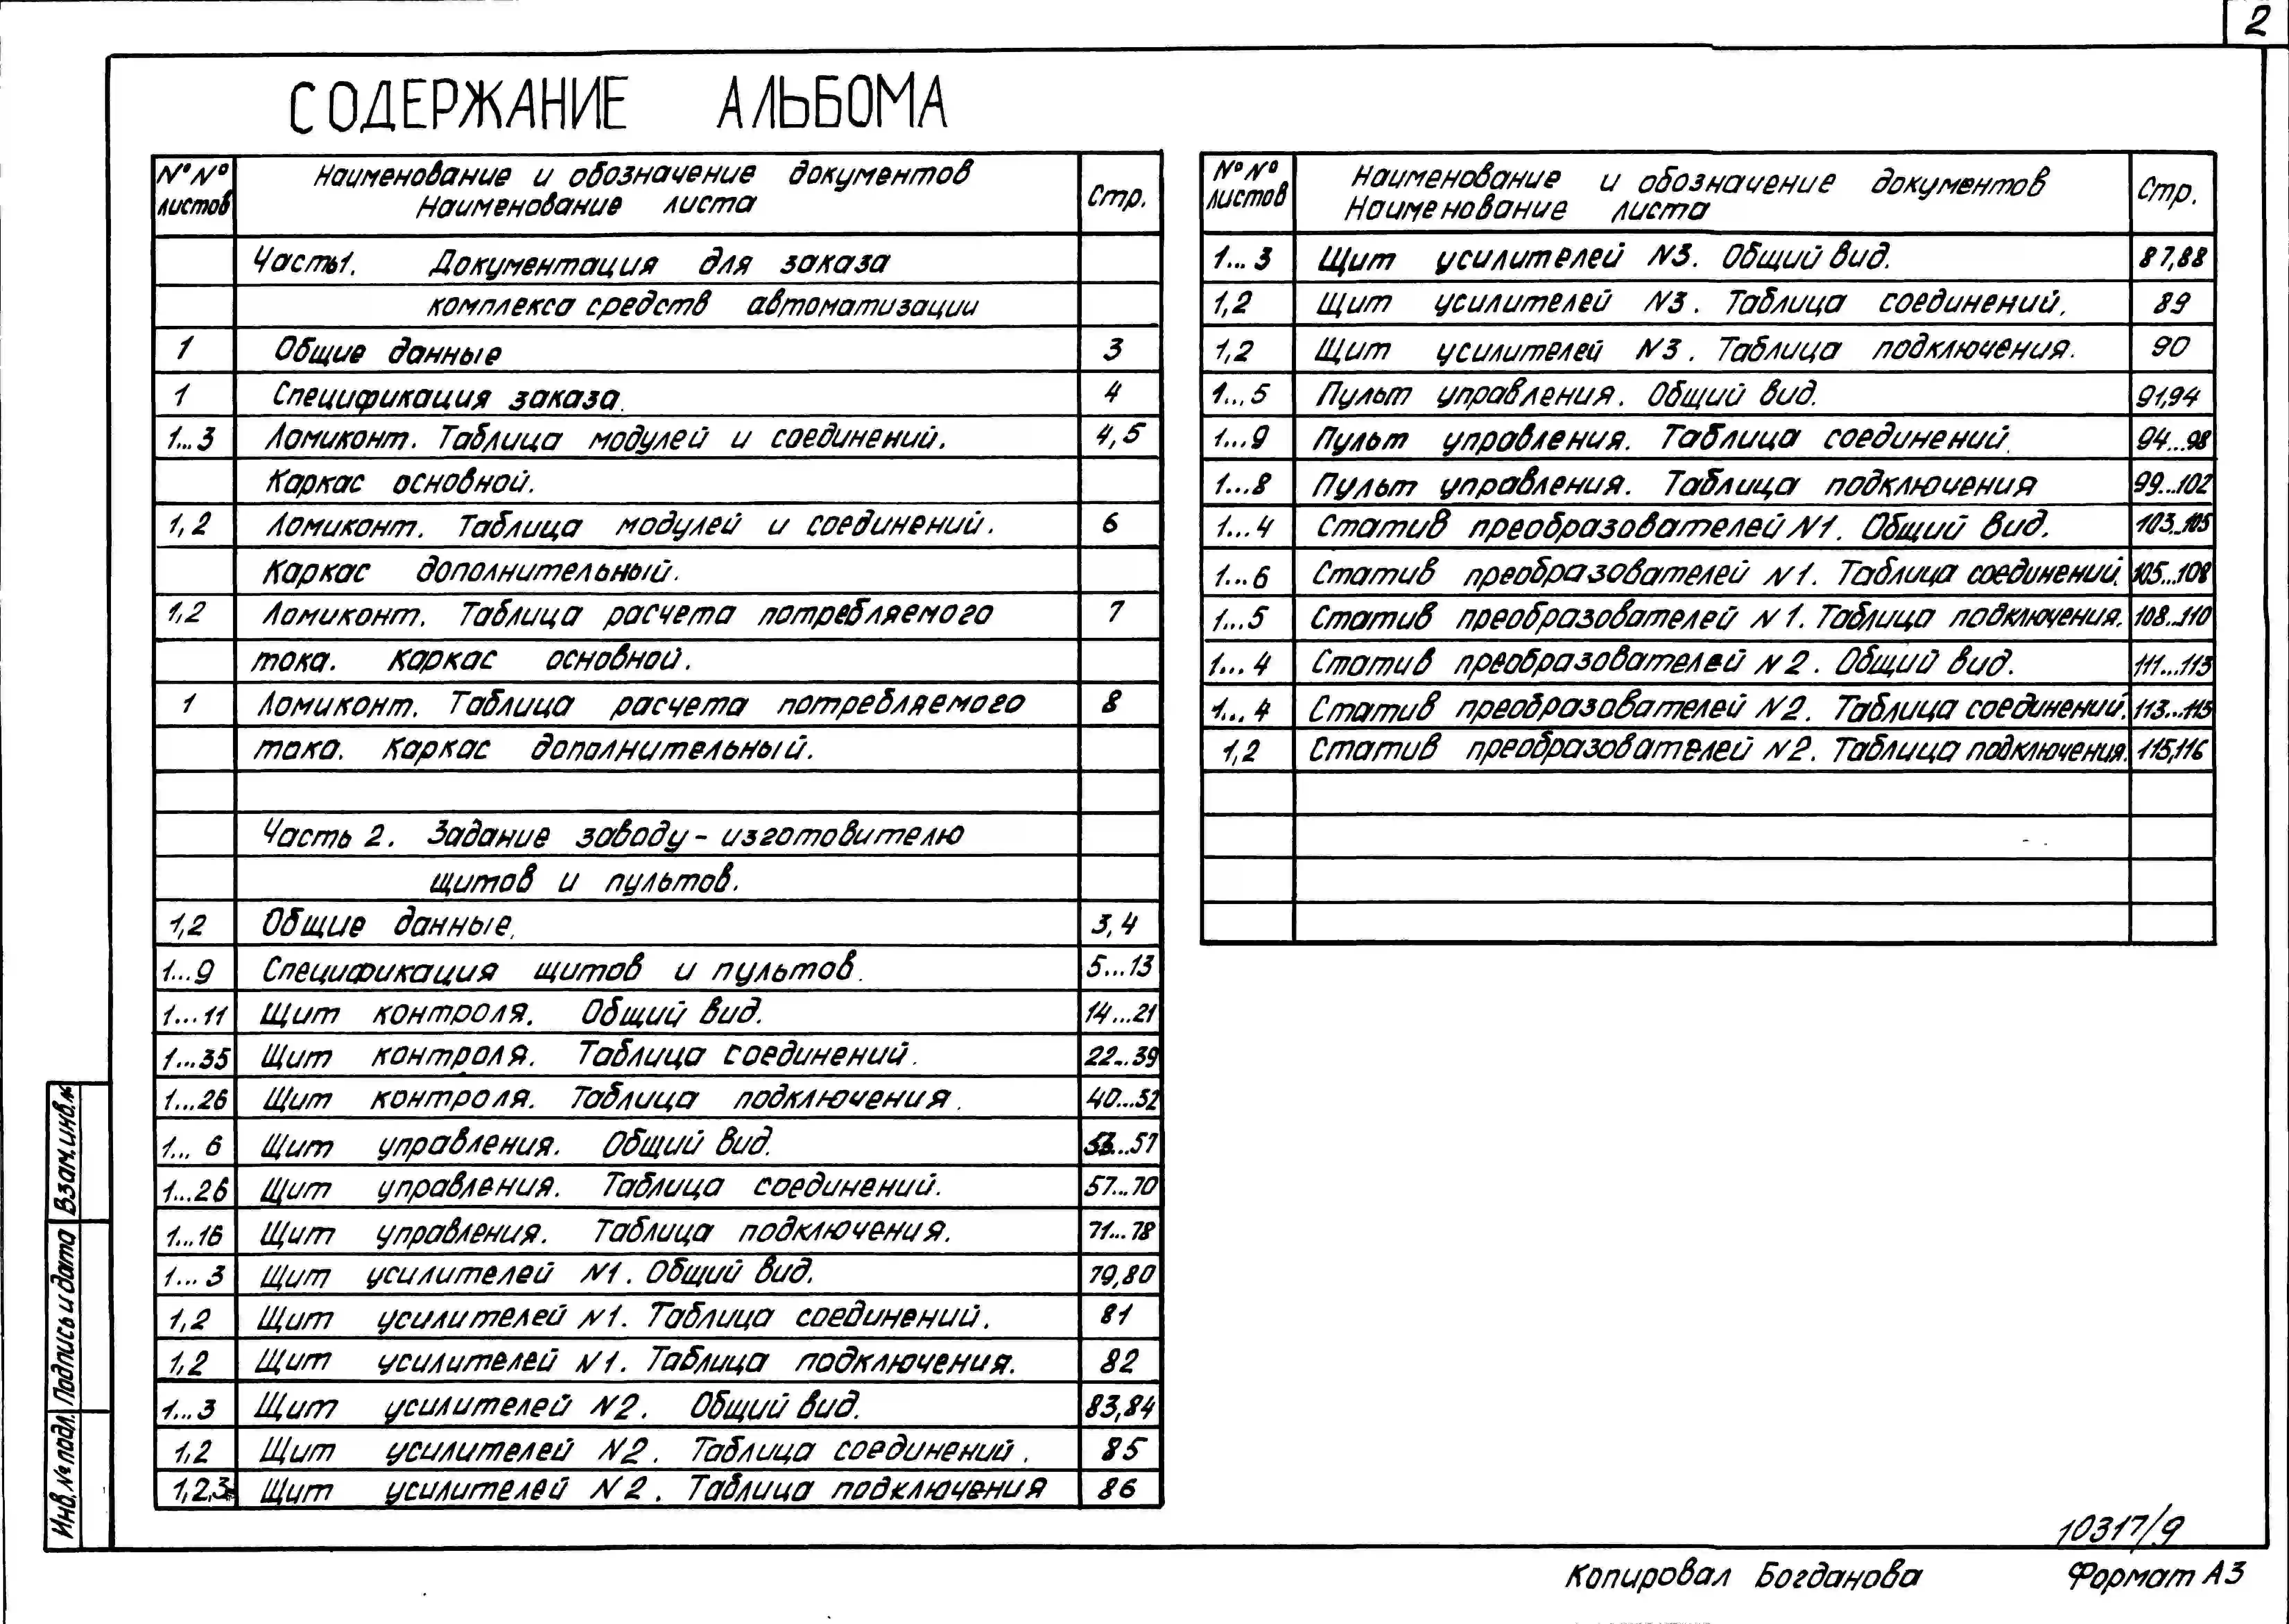 2
СОДЕРЖАНИЕ АЛЬБОМА
№№ листов Наименование и обозначение документов Наименование листа Стр.
Часть 1. Документация для заказа
комплекса средств автоматизации
1 Общие данные 3
1 Спецификация заказа. 4
1...3 Ломиконт. Таблица модулей и соединений. 4,5
Каркас основной.
1,2 Ломиконт. Таблица модулей и соединений. 6
Каркас дополнительный.
1,2 Ломиконт. Таблица расчета потребляемого 7
тока. Каркас основной.
1 Ломиконт. Таблица расчета потребляемого 8
тока. Каркас дополнительный.
Часть 2. Задание заводу-изготовителю
щитов и пультов.
1,2 Общие данные. 3,4
1...9 Спецификация щитов и пультов. 5...13
1...11 Щит контроля. Общий вид. 14...21
1...35 Щит контроля. Таблица соединений. 22...39
1...26 Щит контроля. Таблица подключения. 40...52
1...6 Щит управления. Общий вид. 53...57
1...26 Щит управления. Таблица соединений. 57...70
1...16 Щит управления. Таблица подключения. 71...78
1...3 Щит усилителей N1. Общий вид. 79,80
1,2 Щит усилителей N1. Таблица соединений. 81
1,2 Щит усилителей N1. Таблица подключения. 82
1...3 Щит усилителей N2. Общий вид. 83,84
1,2 Щит усилителей N2. Таблица соединений. 85
1,2,3 Щит усилителей N2. Таблица подключения 86
№№ листов Наименование и обозначение документов Наименование листа Стр.
1...3 Щит усилителей N3. Общий вид. 87,88
1,2 Щит усилителей N3. Таблица соединений. 89
1,2 Щит усилителей N3. Таблица подключения. 90
1...5 Пульт управления. Общий вид. 91,94
1...9 Пульт управления. Таблица соединений. 94...98
1...8 Пульт управления. Таблица подключения 99...102
1...4 Статив преобразователей N1. Общий вид. 103...105
1...6 Статив преобразователей N1. Таблица соединений. 105...108
1...5 Статив преобразователей N1. Таблица подключения. 108...110
1...4 Статив преобразователей N2. Общий вид. 111...113
1...4 Статив преобразователей N2. Таблица соединений. 113...115
1,2 Статив преобразователей N2. Таблица подключения. 115,116
Инв.№ подл. Подпись и дата Взам.инв.№
10317/9
Копировал Богданова Формат А3